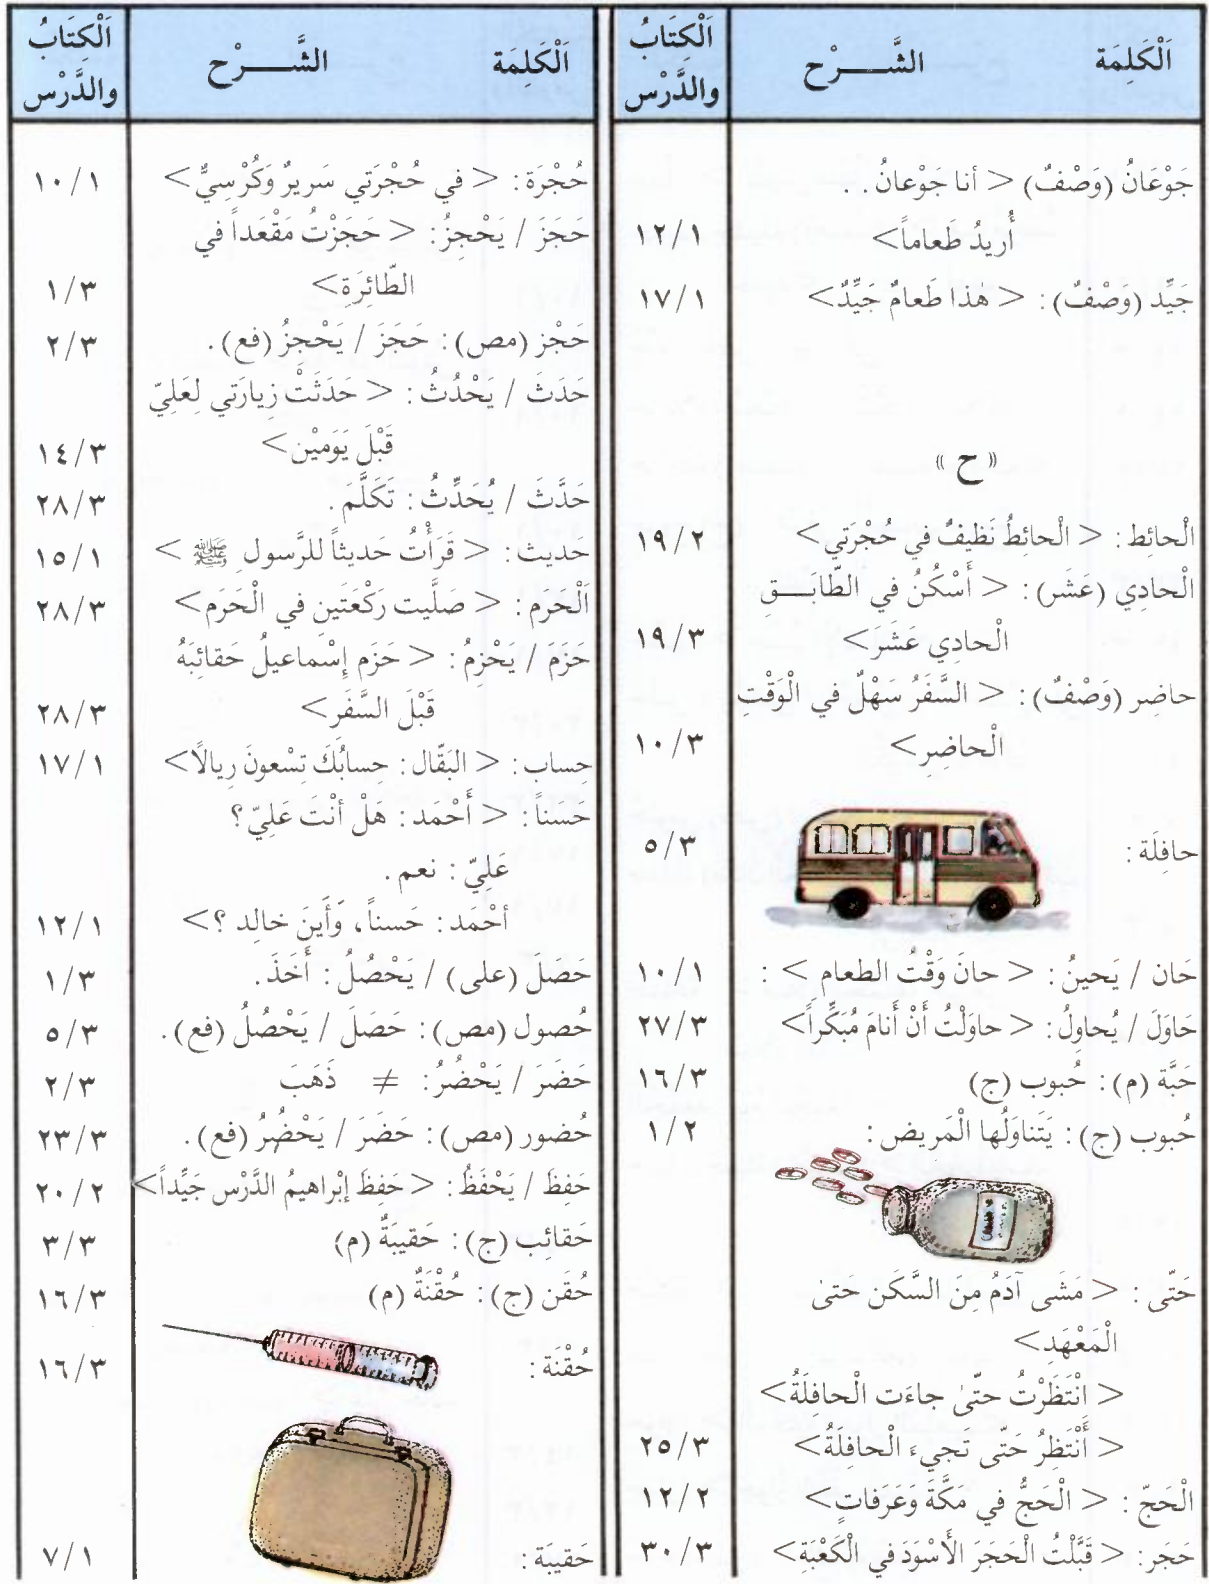 اَلْكَلِمَة الشَّـــرْح اَلْكِتَابُ والدَّرْس
جَوْعَانُ (وَصْفٌ) < أنا جَوْعانُ . .
أُريدُ طَعاماً> ١٢/١
جَيِّد (وَصْفٌ) : < هَذا طَعامٌ جَيِّدٌ> ١٧/١
« ح »
الْحائِط : < الْحائِطُ نَظيفٌ في حُجْرَتي> ١٩/٢
الْحادِي (عَشَر) : < أَسْكُنُ في الطّابَـــقِ
الْحادِي عَشَرَ> ١٩/٣
حاضِر (وَصْفٌ) : < السَّفَرُ سَهْلٌ في الْوَقْتِ
الْحاضِرِ> ١٠/٣
حافِلَة : ٥/٣
حَان / يَحينُ : < حانَ وَقْتُ الطعامِ > : ١٠/١
حَاوَلَ / يُحاوِلُ : < حاوَلْتُ أَنْ أَنامَ مُبَكِّراً> ٢٧/٣
حَبَّة (م) : حُبوب (ج) ١٦/٣
حُبوب (ج) : يَتَناوَلُها الْمَريض : ١/٢
حَتّى : < مَشَى آدَمُ مِنَ السَّكَن حَتىٰ
الْمَعْهَدِ>
< انْتَظَرْتُ حتّىٰ جاءَت الْحافِلَةُ>
< أَنْتَظِرُ حَتّى تَجيءَ الْحافِلَةُ> ٢٥/٣
الْحَجّ : < الْحَجُّ في مَكَّةَ وَعَرَفاتٍ> ١٢/٢
حَجَر : < قَبَّلْتُ الْحَجَرَ الأَسْوَدَ في الْكَعْبَةِ> ٣٠/٣
اَلْكَلِمَة الشَّـــرْح اَلْكِتَابُ والدَّرْس
حُجْرَة : < في حُجْرَتي سَريرٌ وَكُرْسِيٌّ> ١٠/١
حَجَزَ / يَحْجِزُ : < حَجَزْتُ مَقْعَداً في
الطّائِرَةِ> ١/٣
حَجْز (مص) : حَجَزَ / يَحْجِزُ (فع) . ٢/٣
حَدَثَ / يَحْدُثُ : < حَدَثَتْ زِيارَتي لِعَلِيّ
قَبْلَ يَوَميْن> ١٤/٣
حَدَّثَ / يُحَدِّثُ : تَكَلَّمَ . ٢٨/٣
حَديث : < قَرَأْتُ حَديثاً للرَّسولِ ﷺ > ١٥/١
اَلْحرم : < صَلَّيت رَكْعَتَينِ في الْحَرَم> ٢٨/٣
حَزَمَ / يَحْزِمُ : < حَزَم إِسْماعيلُ حَقائِبَهُ
قَبْلَ السَّفَرِ> ٢٨/٣
حِساب : < البَقّال : حِسابُكَ تِسْعونَ رِيالًا> ١٧/١
حَسناً : < أَحْمَد : هَلْ أنْتَ عَلِيّ ؟
عَلِيّ : نعم .
أحْمَد : حَسناً، وَأَينَ خالِد ؟> ١٢/١
حَصَلَ (على) / يَحْصُلُ : أَخَذَ . ١/٣
حُصول (مص) : حَصَلَ / يَحْصُلُ (فع) . ٥/٣
حَضَرَ / يَحْضُرُ : ≠ ذَهَبَ ٢/٣
حُضور (مص) : حَضَرَ / يَحْضُرُ (فع) . ٢٣/٣
حَفِظَ / يَحْفَظُ : < حَفِظَ إبْراهيمُ الدَّرْس جَيِّداً> ٢٠/٢
حَقائِب (ج) : حَقيبَةٌ (م) ٣/٣
حُقَن (ج) : حُقْنَةٌ (م) ١٦/٣
حُقْنَة : ١٦/٣
حَقيبَة : ٧/١